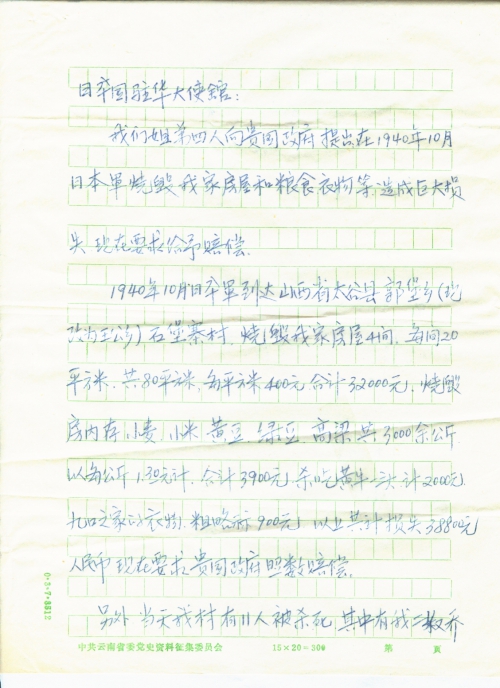 日本国驻华大使馆：
我们姐弟四人向贵国政府提出在1940年10月
日本军烧毁我家房屋和粮食衣物等,造成巨大损
失.现在要求给予赔偿.
1940年10月日本军到达山西省太谷县郭堡乡(现
改为王公乡)石堡寨村,烧毁我家房屋4间,每间20
平方米.共80平方米,每平方米400元合计32000元,烧毁
房内存小麦.小米.黄豆.绿豆.高梁共3000余公斤
以每公斤1.30元计,合计3900元,杀吃黄牛一头计2000元,
九口之家的衣物,粗略计900元,以上共计损失38800元
人民币.现在要求贵国政府照数赔偿.
另外当天我村有11人被杀死,其中有我二叔乔
中共云南省委党史资料征集委员会 15×20=300 第 页